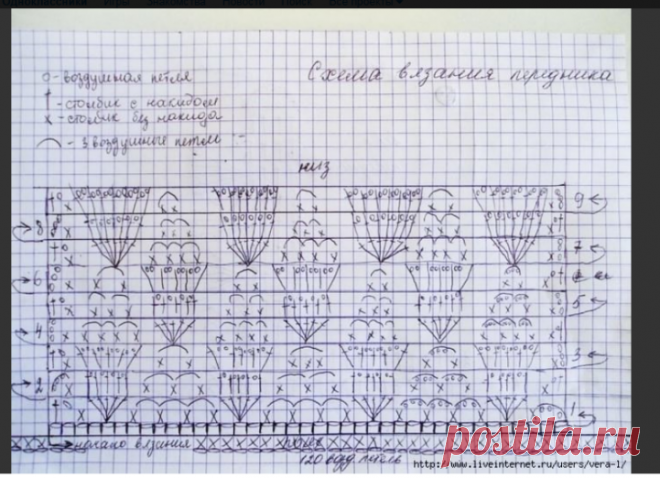 Схема вязания передника
о - воздушная петля
† - столбик с накидом
х - столбик без накида
⌒ - 3 воздушные петли
низ
9
8
7
6
5
4
3
2
1
начало вязания
пояс
120 возд. петль
postila.ru
http://www.liveinternet.ru/users/vera-l/